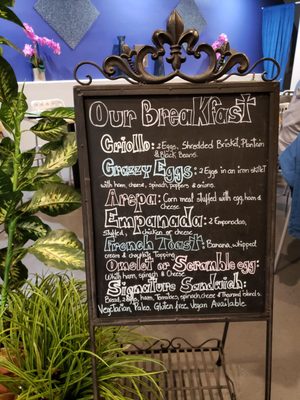 Our BreaKfast
Criollo: 2 Eggs, Shredded Brisket, Plantain
& Black Beans.
Crazy Eggs: 2 Eggs in an iron skillet
with ham, cheese, spinach, peppers & onions.
Arepa: Corn meal stuffed with egg, ham &
cheese.
Empanada: 2 Empanadas,
stuffed, chicken or cheese
French Toast: Banana, whipped
cream & chocolate topping
Omelet or Scramble egg:
With Ham, Spinach & Cheese.
Signature Sandwich:
Bread, 2 eggs, ham, tomatoes, spinach, cheese & thousand islands.
Vegetarian, Paleo, Gluten free, Vegan Available